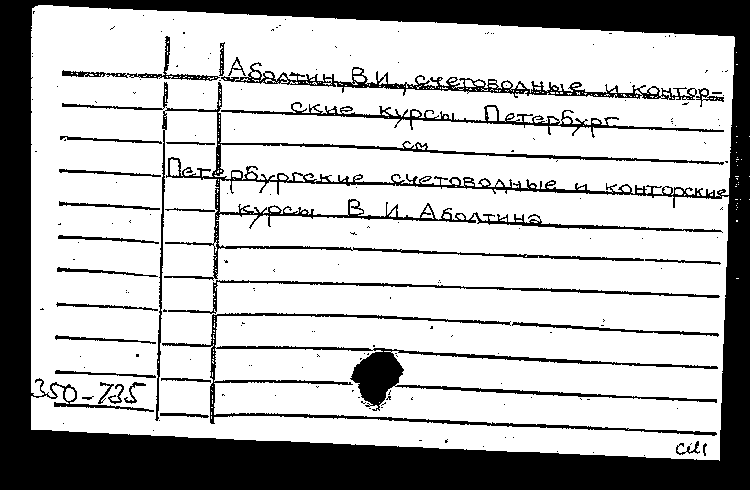 Аболтин, В.И., счетоводные и контор-
ские курсы. Петербург
см
Петербургские счетоводные и конторские
курсы В. И. Аболтина
350-735